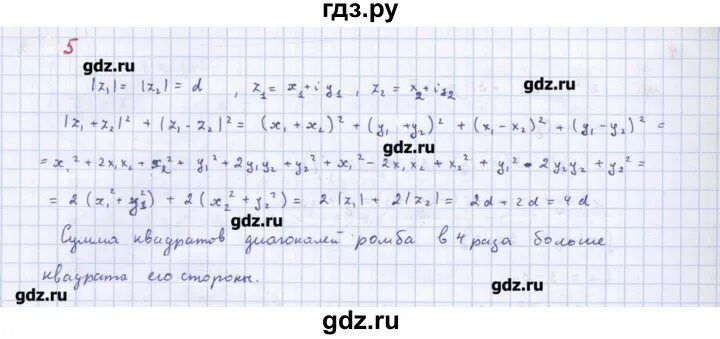 гдз.ру
5
gdz.ru
gdz.ru
|z₁| = |z₂| = d , z₁ = x₁+iy₁ , z₂ = x₂+iy₂
|z₁+z₂|² + |z₁-z₂|² = (x₁+x₂)² + (y₁+y₂)² + (x₁-x₂)² + (y₁-y₂)² =
gdz.ru
= x₁² + 2x₁x₂ + x₂² + y₁² + 2y₁y₂ + y₂² + x₁² - 2x₁x₂ + x₂² + y₁² - 2y₁y₂ + y₂² =
= 2(x₁²+y₁²) + 2(x₂²+y₂²) = 2|z₁| + 2|z₂| = 2d + 2d = 4d
Сумма квадратов диагоналей ромба в 4 раза больше
gdz.ru
квадрата его стороны.
gdz.ru
gdz.ru
gdz.ru